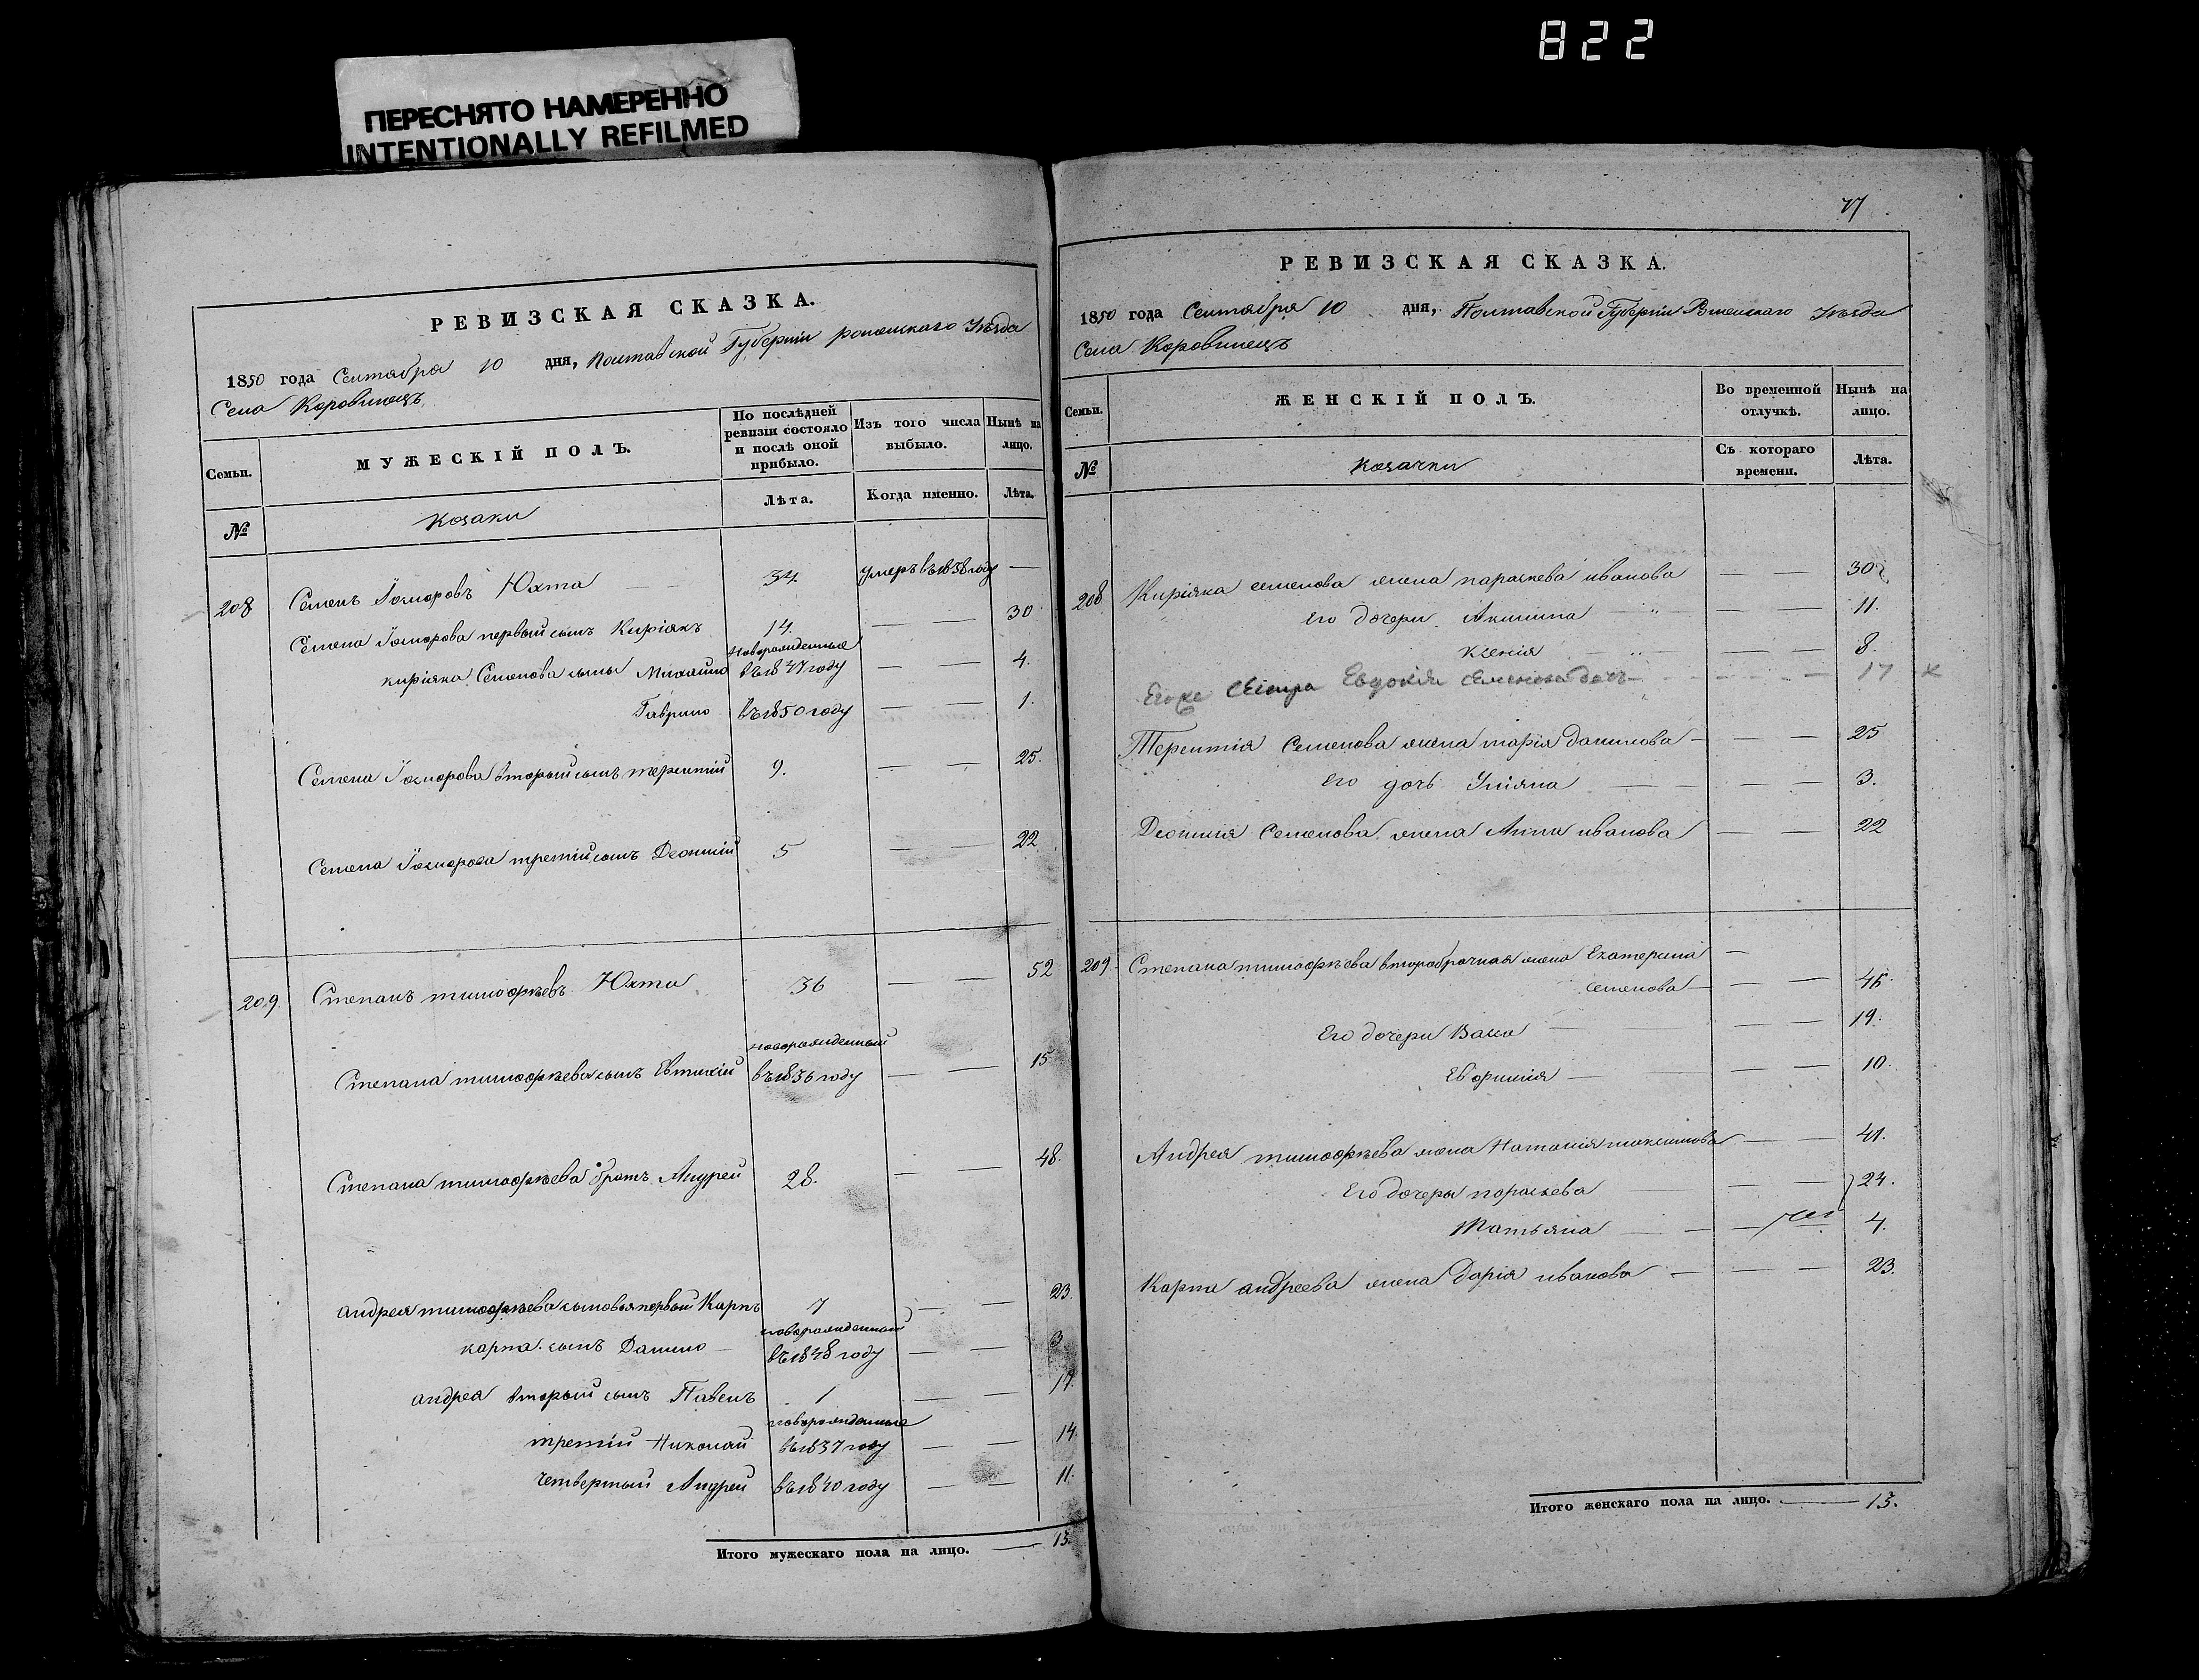 822
ПЕРЕСНЯТО НАМЕРЕННО
INTENTIONALLY REFILMED
РЕВИЗСКАЯ СКАЗКА.
1850 года Сентября 10 дня, Полтавской Губерніи роменскаго Уѣзда
Села Коровинецъ
Семьи.
МУЖЕСКІЙ ПОЛЪ.
По послѣдней ревизіи состояло и послѣ оной прибыло.
Изъ того числа выбыло.
Нынѣ на лицо.
№
Козаки
Лѣта.
Когда именно.
Лѣта.
208 Семенъ Юхта 34 умеръ въ 1838 году —
Семена первый сынъ Киріякъ 14. — — 30
новорожденные
киріяка Семенова сыны Михайло въ 1847 году — — 4.
Гаврило въ 1850 году — — 1.
Семена вторый сынъ терентій 9. — — 25.
Семена третій сынъ Леонтій 5 — — 22
209. Степанъ тимофѣевъ Юхта 36 — — 52
новорожденный
Степана тимофѣева сынъ Евтихій въ 1836 году — — 15
Степана тимофѣева братъ Андрей 28. — — 48.
андрея тимофѣева сыновья первый Карпъ 7 — — 23.
новорожденный
карпа сынъ Данило — въ 1848 году — — 3
андрея вторый сынъ Павелъ 1 — — 17.
новорожденные
третій Николай въ 1837 году — — 14.
четвертый Андрей въ 1840 году — — 11.
Итого мужескаго пола на лицо. — 13.
77
РЕВИЗСКАЯ СКАЗКА.
1850 года Сентября 10 дня, Полтавской Губерніи Роменскаго Уѣзда
Села Коровинецъ
Семьи.
ЖЕНСКІЙ ПОЛЪ.
Во временной отлучкѣ.
Нынѣ на лицо.
№
Козачки
Съ котораго времени.
Лѣта.
208 Киріяка семенова жена параскева иванова — — 30
Его дочери Акилина — — 11.
Ксенія — — 8.
Его же сестра Евдокія Семенова дочь — — 17 ×
Терентія Семенова жена марія данилова — — 25
Его дочь Уліяна — — 3.
Леонтія Семенова жена Анна иванова — — 22
209 Степана тимофѣева второбрачная жена Екатерина —
семенова — — 45
Его дочери Васа — — 19.
Евфимія — — 10.
Андрея тимофѣева жена Наталія максимова — — 41.
Его дочери параскева — — 24.
Татьяна — — 4.
Карпа андреева жена Дарія иванова — — 23.
Итого женскаго пола на лицо. — 13.